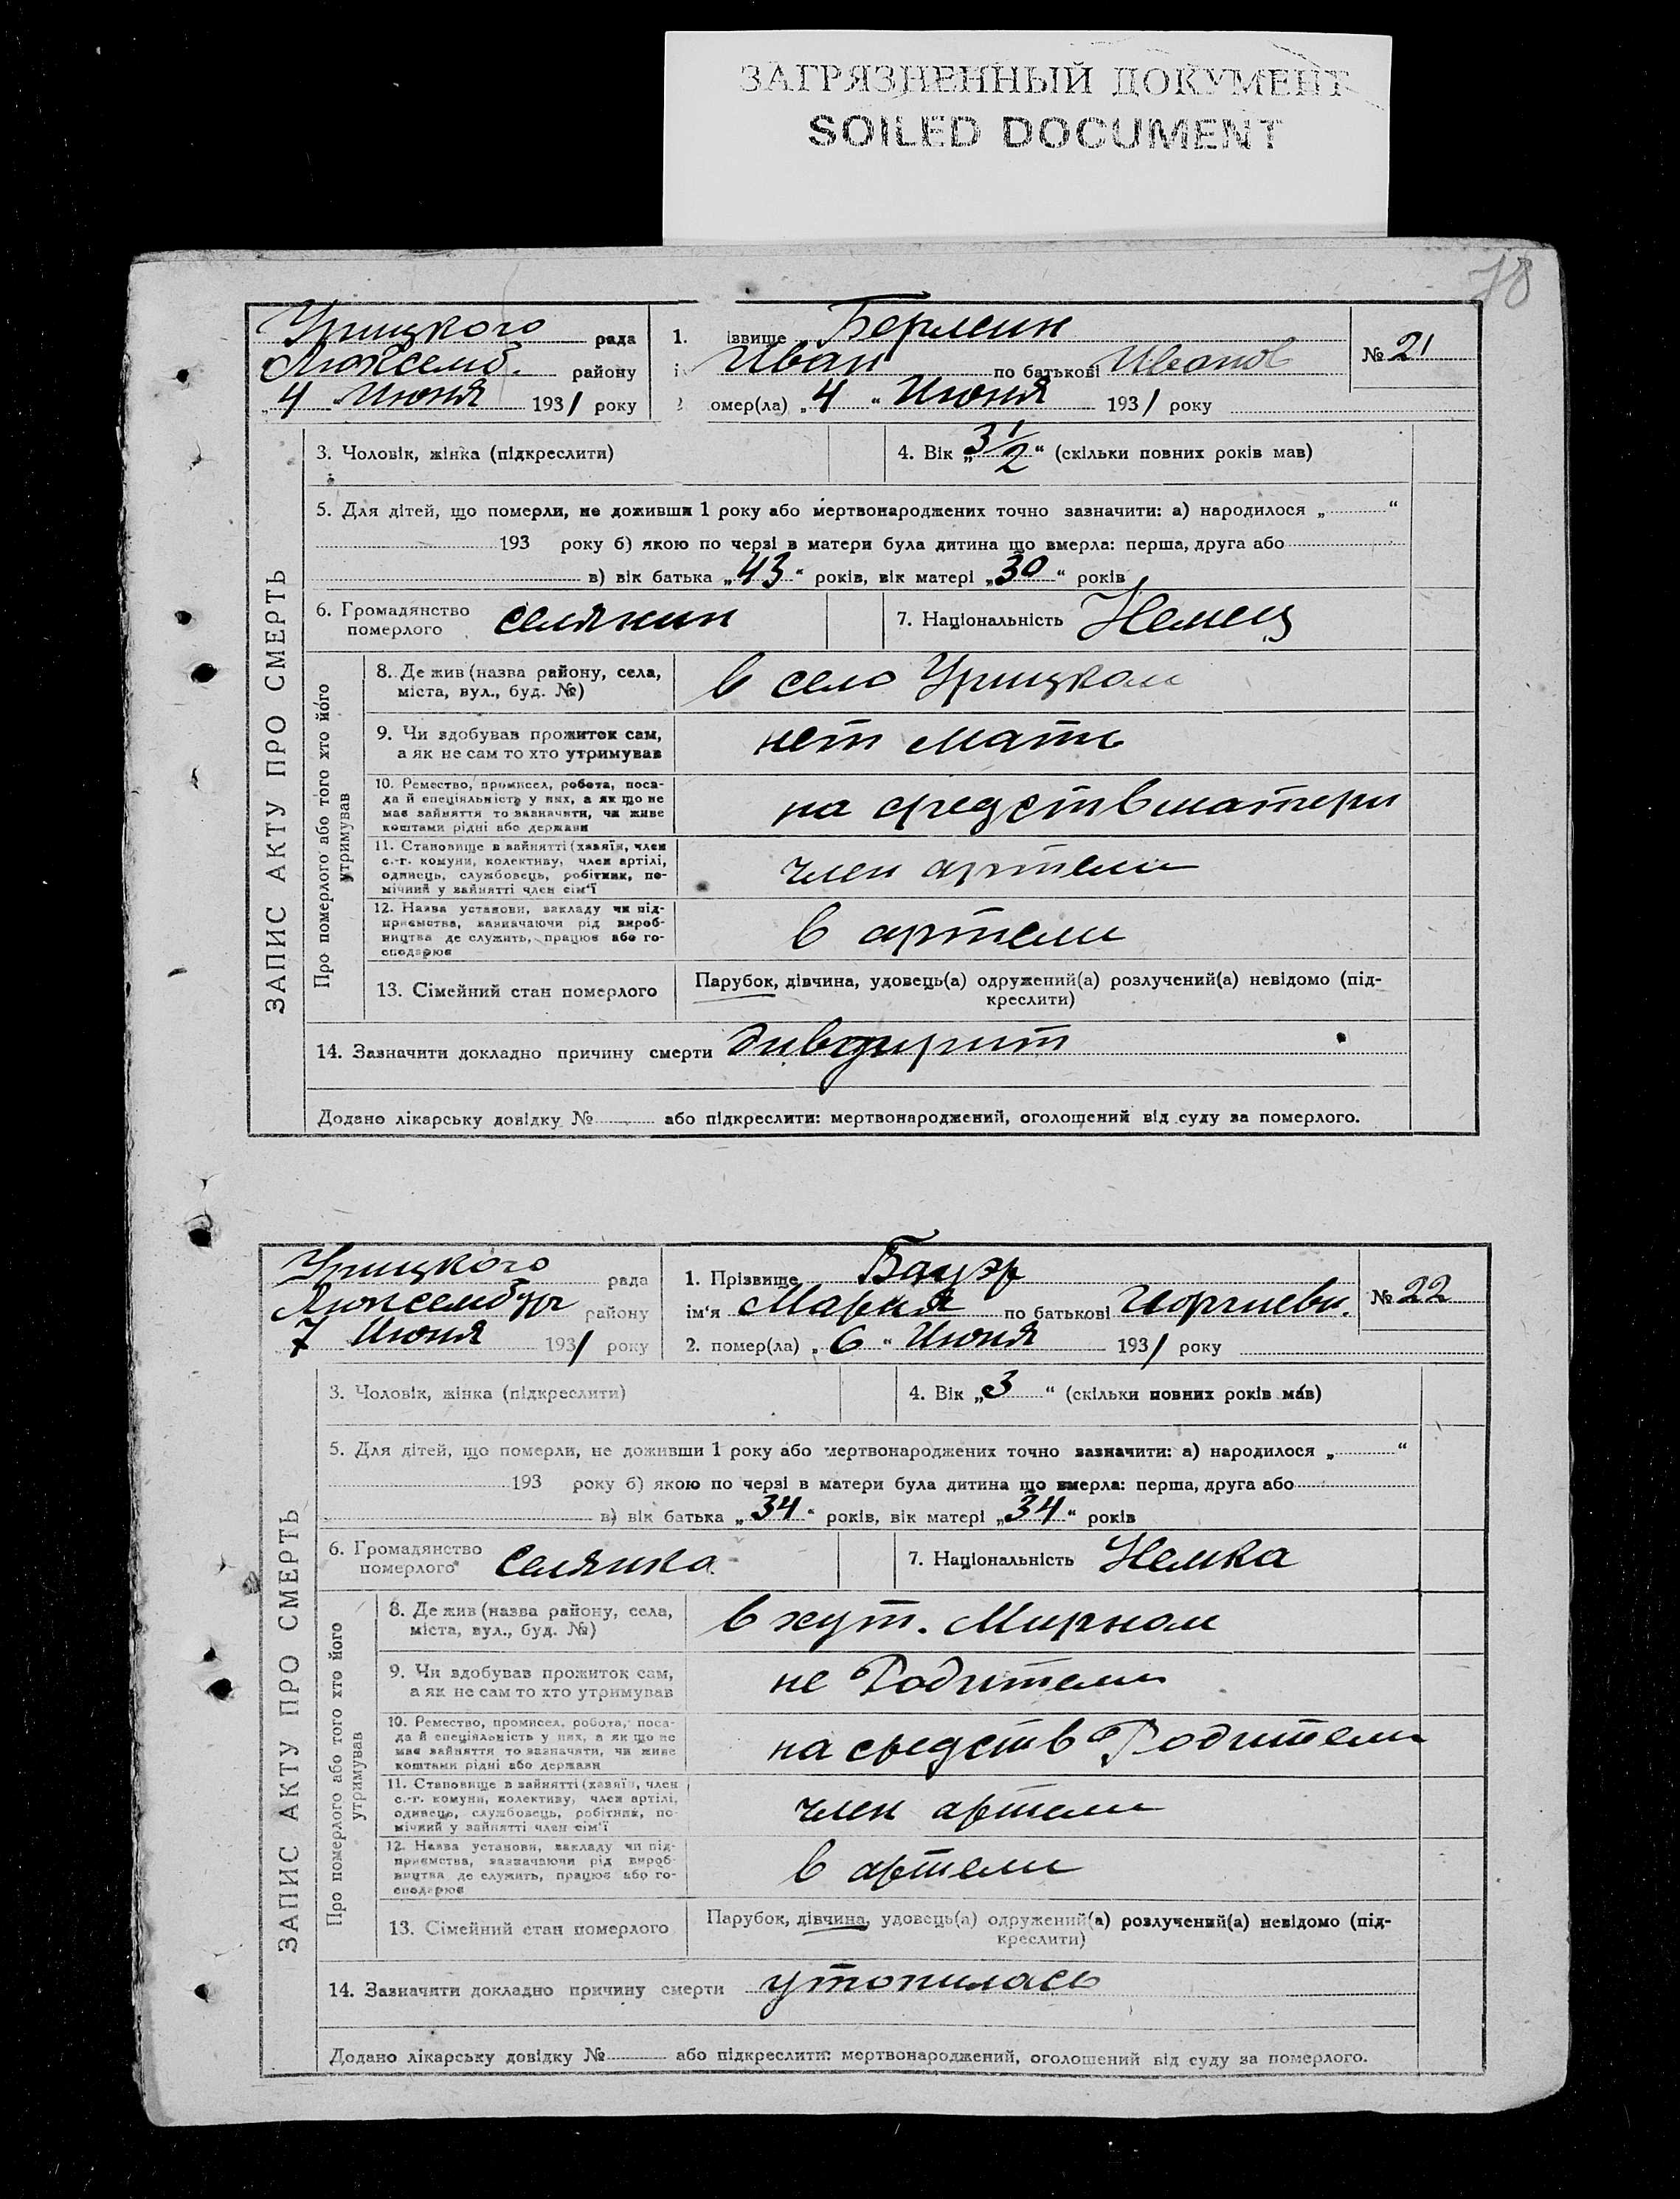 ЗАГРЯЗНЕННЫЙ ДОКУМЕНТ
SOILED DOCUMENT
78
Урицкого рада
Люксемб. району
„4 Июня 1931 року
1. ізвище Берлеин
і Иван по батькові Иванов
омер(ла) „4“ Июня 1931 року
№ 21
ЗАПИС АКТУ ПРО СМЕРТЬ
3. Чоловік, жінка (підкреслити)
4. Вік „3 1/2“ (скільки повних років мав)
5. Для дітей, що померли, не доживши 1 року або мертвонароджених точно зазначити: а) народилося „ “
193 року б) якою по черзі в матери була дитина що вмерла: перша, друга або
в) вік батька „43“ років, вік матері „30“ років
6. Громадянство
померлого
селянин
7. Національність Немец
Про померлого або того хто його
утримував
8. Де жив (назва району, села,
міста, вул., буд. №)
в село Урицком
9. Чи здобував прожиток сам,
а як не сам то хто утримував
нет мать
10. Ремество, промисел, робота, поса-
да й спеціяльність у них, а як що не
має зайняття то зазначити, чи живе
коштами рідні або держави
на средств матери
11. Становище в зайнятті (хазяїн, член
с.-г. комуни, колективу, член артілі,
одинець, службовець, робітник, по-
мічний у зайнятті член сім'ї
член артели
12. Назва установи, закладу чи під-
приємства, зазначаючи рід вироб-
ництва де служить, працює або го-
сподарює
в артели
13. Сімейний стан померлого
Парубок, дівчина, удовець(а) одружений(а) розлучений(а) невідомо (під-
креслити)
14. Зазначити докладно причину смерти
Додано лікарську довідку № або підкреслити: мертвонароджений, оголошений від суду за померлого.
Урицкого рада
Люксембург району
7 Июня 1931 року
1. Прізвище Бауэр
ім'я Мария по батькові
2. помер(ла) „6“ Июня 1931 року
№ 22
ЗАПИС АКТУ ПРО СМЕРТЬ
3. Чоловік, жінка (підкреслити)
4. Вік „3“ (скільки повних років мав)
5. Для дітей, що померли, не доживши 1 року або мертвонароджених точно зазначити: а) народилося „ “
193 року б) якою по черзі в матери була дитина що вмерла: перша, друга або
в) вік батька „34“ років, вік матері „34“ років
6. Громадянство
померлого
Селянка
7. Національність Немка
Про померлого або того хто його
утримував
8. Де жив (назва району, села,
міста, вул., буд. №)
в хут. Мирном
9. Чи здобував прожиток сам,
а як не сам то хто утримував
не Родители
10. Ремество, промисел, робота, поса-
да й спеціяльність у них, а як що не
має зайняття то зазначити, чи живе
коштами рідні або держави
на сведств Родители
11. Становище в зайнятті (хазяїн, член
с.-г. комуни, колективу, член артілі,
одинець, службовець, робітник, по-
мічний у зайнятті член сім'ї
член артели
12. Назва установи, закладу чи під-
приємства, зазначаючи рід вироб-
ництва де служить, працює або го-
сподарює
в артели
13. Сімейний стан померлого
Парубок, дівчина, удовець(а) одружений(а) розлучений(а) невідомо (під-
креслити)
14. Зазначити докладно причину смерти утопилась
Додано лікарську довідку № або підкреслити: мертвонароджений, оголошений від суду за померлого.